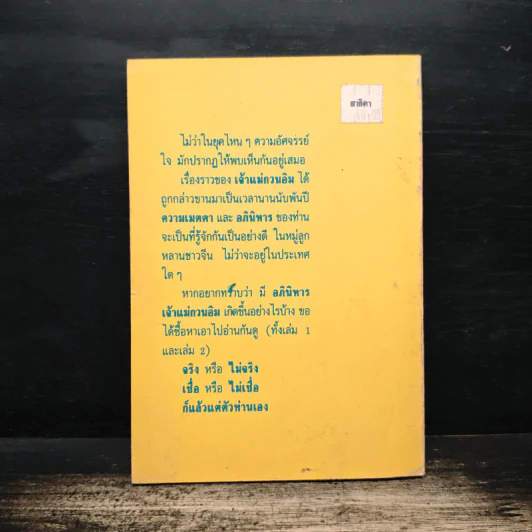 สาธิตา
ไม่ว่าในยุคไหน ๆ ความอัศจรรย์
ใจ มักปรากฏให้พบเห็นกันอยู่เสมอ
เรื่องราวของ เจ้าแม่กวนอิม ได้
ถูกกล่าวขานมาเป็นเวลานานนับพันปี
ความเมตตา และ อภินิหาร ของท่าน
จะเป็นที่รู้จักกันเป็นอย่างดี ในหมู่ลูก
หลานชาวจีน ไม่ว่าจะอยู่ในประเทศ
ใด ๆ
หากอยากทราบว่า มี อภินิหาร
เจ้าแม่กวนอิม เกิดขึ้นอย่างไรบ้าง ขอ
ได้ซื้อหาเอาไปอ่านกันดู (ทั้งเล่ม 1
และเล่ม 2)
จริง หรือ ไม่จริง
เชื่อ หรือ ไม่เชื่อ
ก็แล้วแต่ตัวท่านเอง